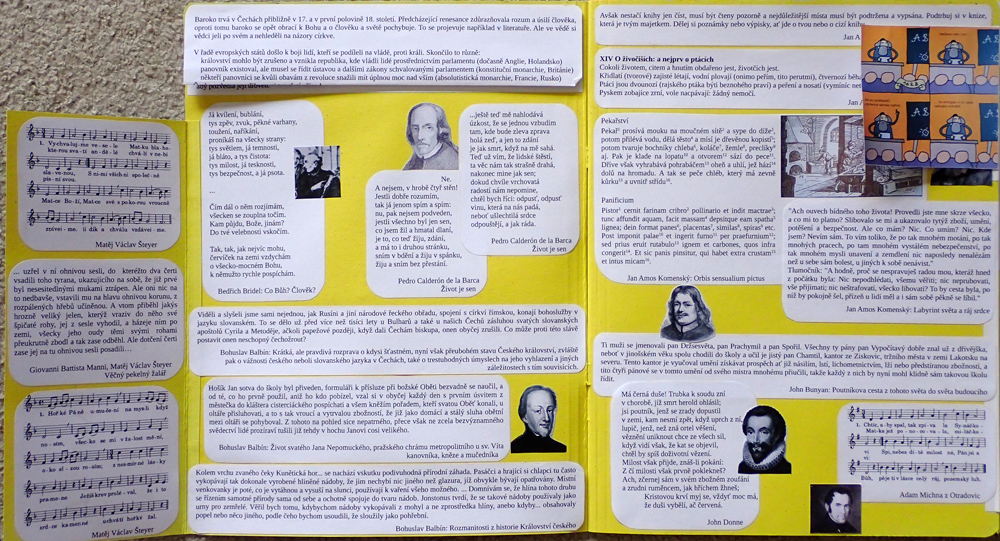 Baroko trvá v Čechách přibližně v 17. a v první polovině 18. století. Předcházející renesance zdůrazňovala rozum a úsilí člověka,
oproti tomu baroko se opět obrací k Bohu a o člověku a světě pochybuje. To se projevuje například v literatuře. Ale ve vědě si
vědci jeli po svém a nehleděli na názory církve.
V řadě evropských států došlo k boji lidí, kteří se podíleli na vládě, proti králi. Skončilo to různě:
království mohlo být zrušeno a vznikla republika, kde vládli lidé prostřednictvím parlamentu (dočasně Anglie, Holandsko)
panovník existoval, ale musel se řídit ústavou a dalšími zákony schvalovanými parlamentem (konstituční monarchie, Británie)
někteří panovníci se kvůli obavám z revoluce snažili mít úplnou moc nad vším (absolutistická monarchie, Francie, Rusko)
1. Vychvaluj-me ve-se-le Mat-ku
Mat-ce Bo-ží, Mat-ce své s po-ko-rou vrouc-ně
Matěj Václav Šteyer
... uzřel v ní ohnivou sesli, do kterého dva čerti
vsadili toho tyrana, ukazujícího na sobě, že již prvé
byl nesmírnými mukami ztrápen. Ale oni nic na
to nedbavše, vstavili mu na hlavu ohnivou korunu, z
rozpálených hřebů učiněnou. A vtom přiběhl jakýs
hrozně veliký jelen, kterýž vraziv do něho své
špičaté rohy, jej z sesle vyhodil, a házeje ním po
zemi, všecky jeho oudy těmi svými rohami
překrutně zbodl a tak zase odběhl. Ale dotčení čerti
zase jej na tu ohnivou sesli posadili…
Giovanni Battista Manni, Matěj Václav Šteyer:
Věčný pekelný žalář
Matěj Václav Šteyer
Já kvílení, bublání,
tys zpěv, zvuk, pěkné varhany,
toužení, naříkání,
pronikáš na všecky strany:
tys světlem, já temností,
já bláto, a tys čistota:
tys milost, já tesknost,
tys bezpečnost, a já psota.
...
Čím dál o něm rozjímám,
všecken se zouplna točím.
Kam půjdu, Bože, jinám?
Do tvé velebnosti vskočím.
Tak, tak, jak nejvíc mohu,
červíček na zemi vzdychám
o všecko-mocném Bohu,
k němužto rychle pospíchám.
Bedřich Bridel: Co Bůh? Člověk?
Ne.
A nejsem, v hrobě čtyř stěn!
Jestli dobře rozumím,
tak já jenom spím a spím:
nu, pak nejsem podveden,
jestli všechno byl jen sen,
co jsem žil a hmatal dlaní,
je to, co teď žiju, zdání,
a má to i druhou stránku,
sním v bdění a žiju v spánku,
žiju a sním bez přestání.
Pedro Calderón de la Barca
Život je sen
...ještě teď mě nahlodává
úzkost, že se jednou vzbudím
tam, kde bude zleva zprava
holá zeď, a jen to zdání
je jak smrt, když na mě sahá.
Teď už vím, že lidské štěstí,
ta věc nám tak strašně drahá,
nakonec mine jak sen;
dokud chvíle vrchovatá
radostí nám nepomine,
chtěl bych říci: odpusť, odpusť
vinu, která na nás padá,
neboť ušlechtilá srdce
odpouštějí, a jak ráda.
Pedro Calderón de la Barca
Život je sen
Viděli a slyšeli jsme sami nejednou, jak Rusíni a jiní národové řeckého obřadu, spojeni s církví římskou, konají bohoslužby v
jazyku slovanském. To se dělo už před více než tisíci lety u Bulharů a také u našich Čechů zásluhou svatých slovanských
apoštolů Cyrila a Metoděje, ačkoli papežové později, když dali Čechám biskupa, onen obyčej zrušili. Co může proti této slávě
postavit onen neschopný čechožrout?
Bohuslav Balbín: Krátká, ale pravdivá rozprava o kdysi šťastném, nyní však přebohém stavu Českého království, zvláště
pak o vážnosti českého neboli slovanského jazyka v Čechách, také o trestuhodných úmyslech na jeho vyhlazení a jiných
záležitostech s tím souvisících.
Hošík Jan sotva do školy byl přiveden, formuláři k přísluze při božské Oběti bezvadně se naučil, a
od té, co ho prvně použil, aniž ho kdo pobízel, vzal si v obyčej každý den s prvním úsvitem z
městečka do kláštera cisterciáckého pospíchati a všem kněžím pořadem, kteří svatou Oběť konali, u
oltáře přisluhovati, a to s tak vroucí a vytrvalou zbožností, že již jako domácí a stálý sluha obětní
mezi oltáři se pohyboval. Z tohoto na pohled sice nepatrného, přece však ne zcela bezvýznamného
svědectví lidé prozíraví tušili již tehdy v hochu Janovi cosi velikého.
Bohuslav Balbín: Život svatého Jana Nepomuckého, pražského chrámu metropolitního u sv. Víta
kanovníka, kněze a mučedníka
Kolem vrchu zvaného čeky Kunětická hor... se nachází vskutku podivuhodná přírodní záhada. Pasáčci a hrající si chlapci tu často
vykopávají tak dokonale vyrobené hliněné nádoby, že jim nechybí nic jiného než glazura, již obvykle bývají opatřovány. Místní
venkovanky je poté, co je vytáhnou a vysuší na slunci, používají k vaření všeho možného. ... Domnívám se, že hlína tohoto druhu
se řízením samotné přírody sama od sebe a ochotně spojuje do tvaru nádob. Jonstonus tvrdí, že se takové nádoby používaly jako
urny pro zemřelé. Věřil bych tomu, kdybychom nádoby vykopávali z mohyl a ne zprostředka hlíny, anebo kdyby... obsahovaly
popel nebo něco jiného, podle čeho bychom usoudili, že sloužily jako pohřební.
Bohuslav Balbín: Rozmanitosti z historie Království českého
Avšak nestačí knihy jen číst, musí být čteny pozorně a nejdůležitější místa musí být podtržena a vypsána. Podtrhuj si v knize,
která je tvým majetkem. Dělej si poznámky nebo výpisky, ať jde o tvou nebo o cizí knihu.
Jan A
XIV O živočiších: a nejprv o ptácích
Cokoli životem, citem a hnutím obdařeno jest, živočich jest.
Křídlatí (tvorové) zajisté létají, vodní plovají (onimo peřím, tito perutmi), čtvernozí
Ptáci jsou dvounozí (rajského ptáka býti beznohého praví) a peření a nosatí (vyminíc
Pyskem zobajíce zrní, vole nacpávají: žádný nemočí.
Jan
Pekařství
Pekař prosívá mouku na moučném sítě a sype do díže,
potom přilévá vodu, dělá těsto a mísí je dřevěnou kopistí;
potom tvaruje bochníky chleba, koláče, žemle, preclíky
aj. Pak je klade na lopatu a otvorem sází do pece.
Dříve však vyhrabává pohrabáčem oheň a uhlí, jež hází
dolů na hromadu. A tak se peče chléb, který má zevně
kůrku a uvnitř střídu.
Panificium
Pistor cernit farinam cribro pollinario et indit mactrae;
tunc affundit aquam, facit massam depsitque eam spatha
lignea; dein format panes, placentas, similas, spiras etc.
Post imponit palae et ingerit furno per praefurnium;
sed prius eruit rutabulo ignem et carbones, quos infra
congerit. Et sic panis pinsitur, qui habet extra crustam
et intus micam.
Jan Amos Komenský: Orbis sensualium pictus
"Ach ouvech bídného toho života! Provedli jste mne skrze všecko,
a co mi to platno? Slibovalo se mi a ukazovalo rytýž zboží, umění,
potěšení a bezpečnost. Ale co mám? Nic. Co umím? Nic. Kde
jsem? Nevím sám. To vím toliko, že po tak mnohém motání, po tak
mnohých pracech, po tak mnohém vystálém nebezpečenství, po
tak mnohém mysli unavení a zemdlení nic naposledy nenalézám
než u sebe sám bolest, u jiných k sobě nenávist."
Tlumočník: "A hodně, proč se nespravuješ radou mou, kteráž hned
z počátku byla: Nic nepodhlédati, všemu věřiti; nic neprubovati,
vše přijímati; nic neštrafovati, všecko libovati? To by cesta byla, po
níž by pokojně šel, přízeň u lidí měl a i sám sobě pěkně se líhil."
Jan Amos Komenský: Labyrint světa a ráj srdce
Ti muži se jmenovali pan Držesvěta, pan Prachymyl a pan Spořil. Všechny ty pány pan Vypočítavý dobře znal už z dřívějška,
neboť v jinošském věku spolu chodili do školy a učil je jistý pan Chamtil, kantor ze Ziskovic, tržního města v zemi Lakotsku na
Severu. Tento kantor je vyučoval umění získávat prospěch ať již násilím, lstí, lichometnictvím, lží nebo předstíranou zbožností, a
tito čtyři pánové se v tomto umění od svého mistra mnohému přiučili, takže každý z nich by nyní mohl klidně sám takovou školu
řídit.
John Bunyan: Poutníkova cesta z tohoto světa do světa budoucího
Má černá duše! Trubka k soudu zní
v chorobě, již smrt herold ohlásí;
jsi poutník, jenž se zrady dopustil
v zemi, kam nesmí zpět, když uprch z ní,
lupič, jenž, než zná ortel věšení,
věznění uniknout chce ze všech sil,
když vidí však, že kat se objevil,
chtěl by spíš doživotní vězení.
Milost však přijde, znáš-li pokání:
Z čí milosti však prvně poklekneš?
Ach, zčernej sám v svém zbožném zoufání
a zrudni ruměncem, jak hříchem žhneš;
Kristovou krví myj se, vždyť moc má,
že duši vybělí, ač červená.
John Donne
Adam Michna z Otradovic